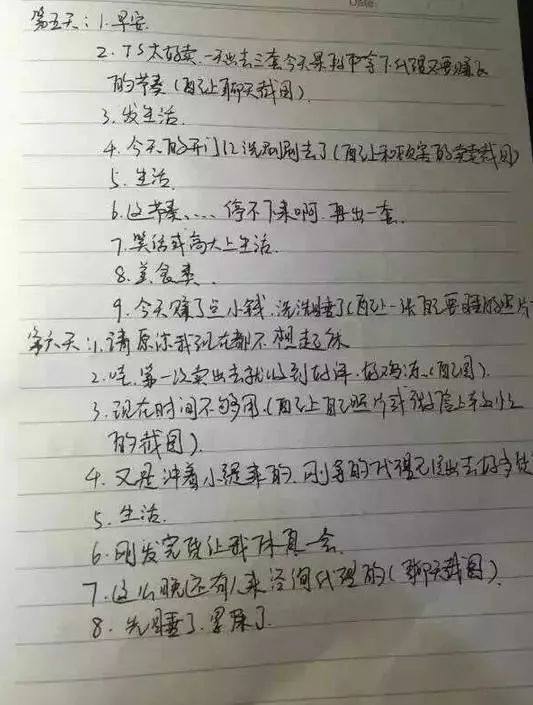 Date:
第五天:1.早安.
2.TS太好卖.一天出去三套今天果
的节奏(配上聊天截图).
3.发生活.
4.今天的开门红洗刷刷去了(配上和顾客的卖卖截图)
5.生活.
6.这节奏.....停不下来啊.再出一套.
7.笑话或高大上生活.
8.美食类.
9.今天赚了点小钱.洗洗睡了(配上一张自己要睡的照片
第六天:1.请原谅我现在都不想起床
2.哇.第一次卖出去就收到好评.好鸡冻.(配图).
3.现在时间不够用.(配上自己照片或微信上
的截图).
4.又是冲着小提来的.刚等的代理已经出去好多件
5.生活.
6.刚发完货让我休息一会.
7.这么晚还有人来咨询代理的(聊天截图).
8.先睡了.累屎了.